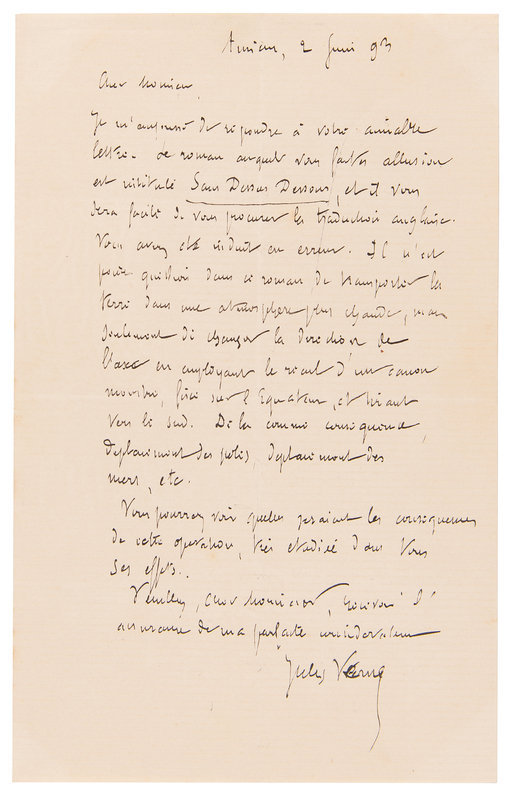 Amiens, 2 Juin 93
Cher Monsieur,
Je m'empresse de répondre à votre aimable
lettre. Le roman auquel vous faites allusion
est intitulé Sans Dessus Dessous, et il vous
sera facile de vous procurer la traduction anglaise.
Vous avez été induit en erreur. Il n'est
point question dans ce roman de transporter la
terre dans une atmosphère plus chaude, mais
seulement de changer la direction de
l'axe en employant le recul d'un canon
monstre, fixé sur l'Equateur, et tirant
vers le sud. De là comme conséquence,
déplacement des pôles, déplacement des
mers, etc.
Vous pourrez voir quelles seraient les conséquences
de cette opération, très étudiée dans tous
ses effets.
Veuillez, cher Monsieur, recevoir l'
assurance de ma parfaite considération
Jules Verne